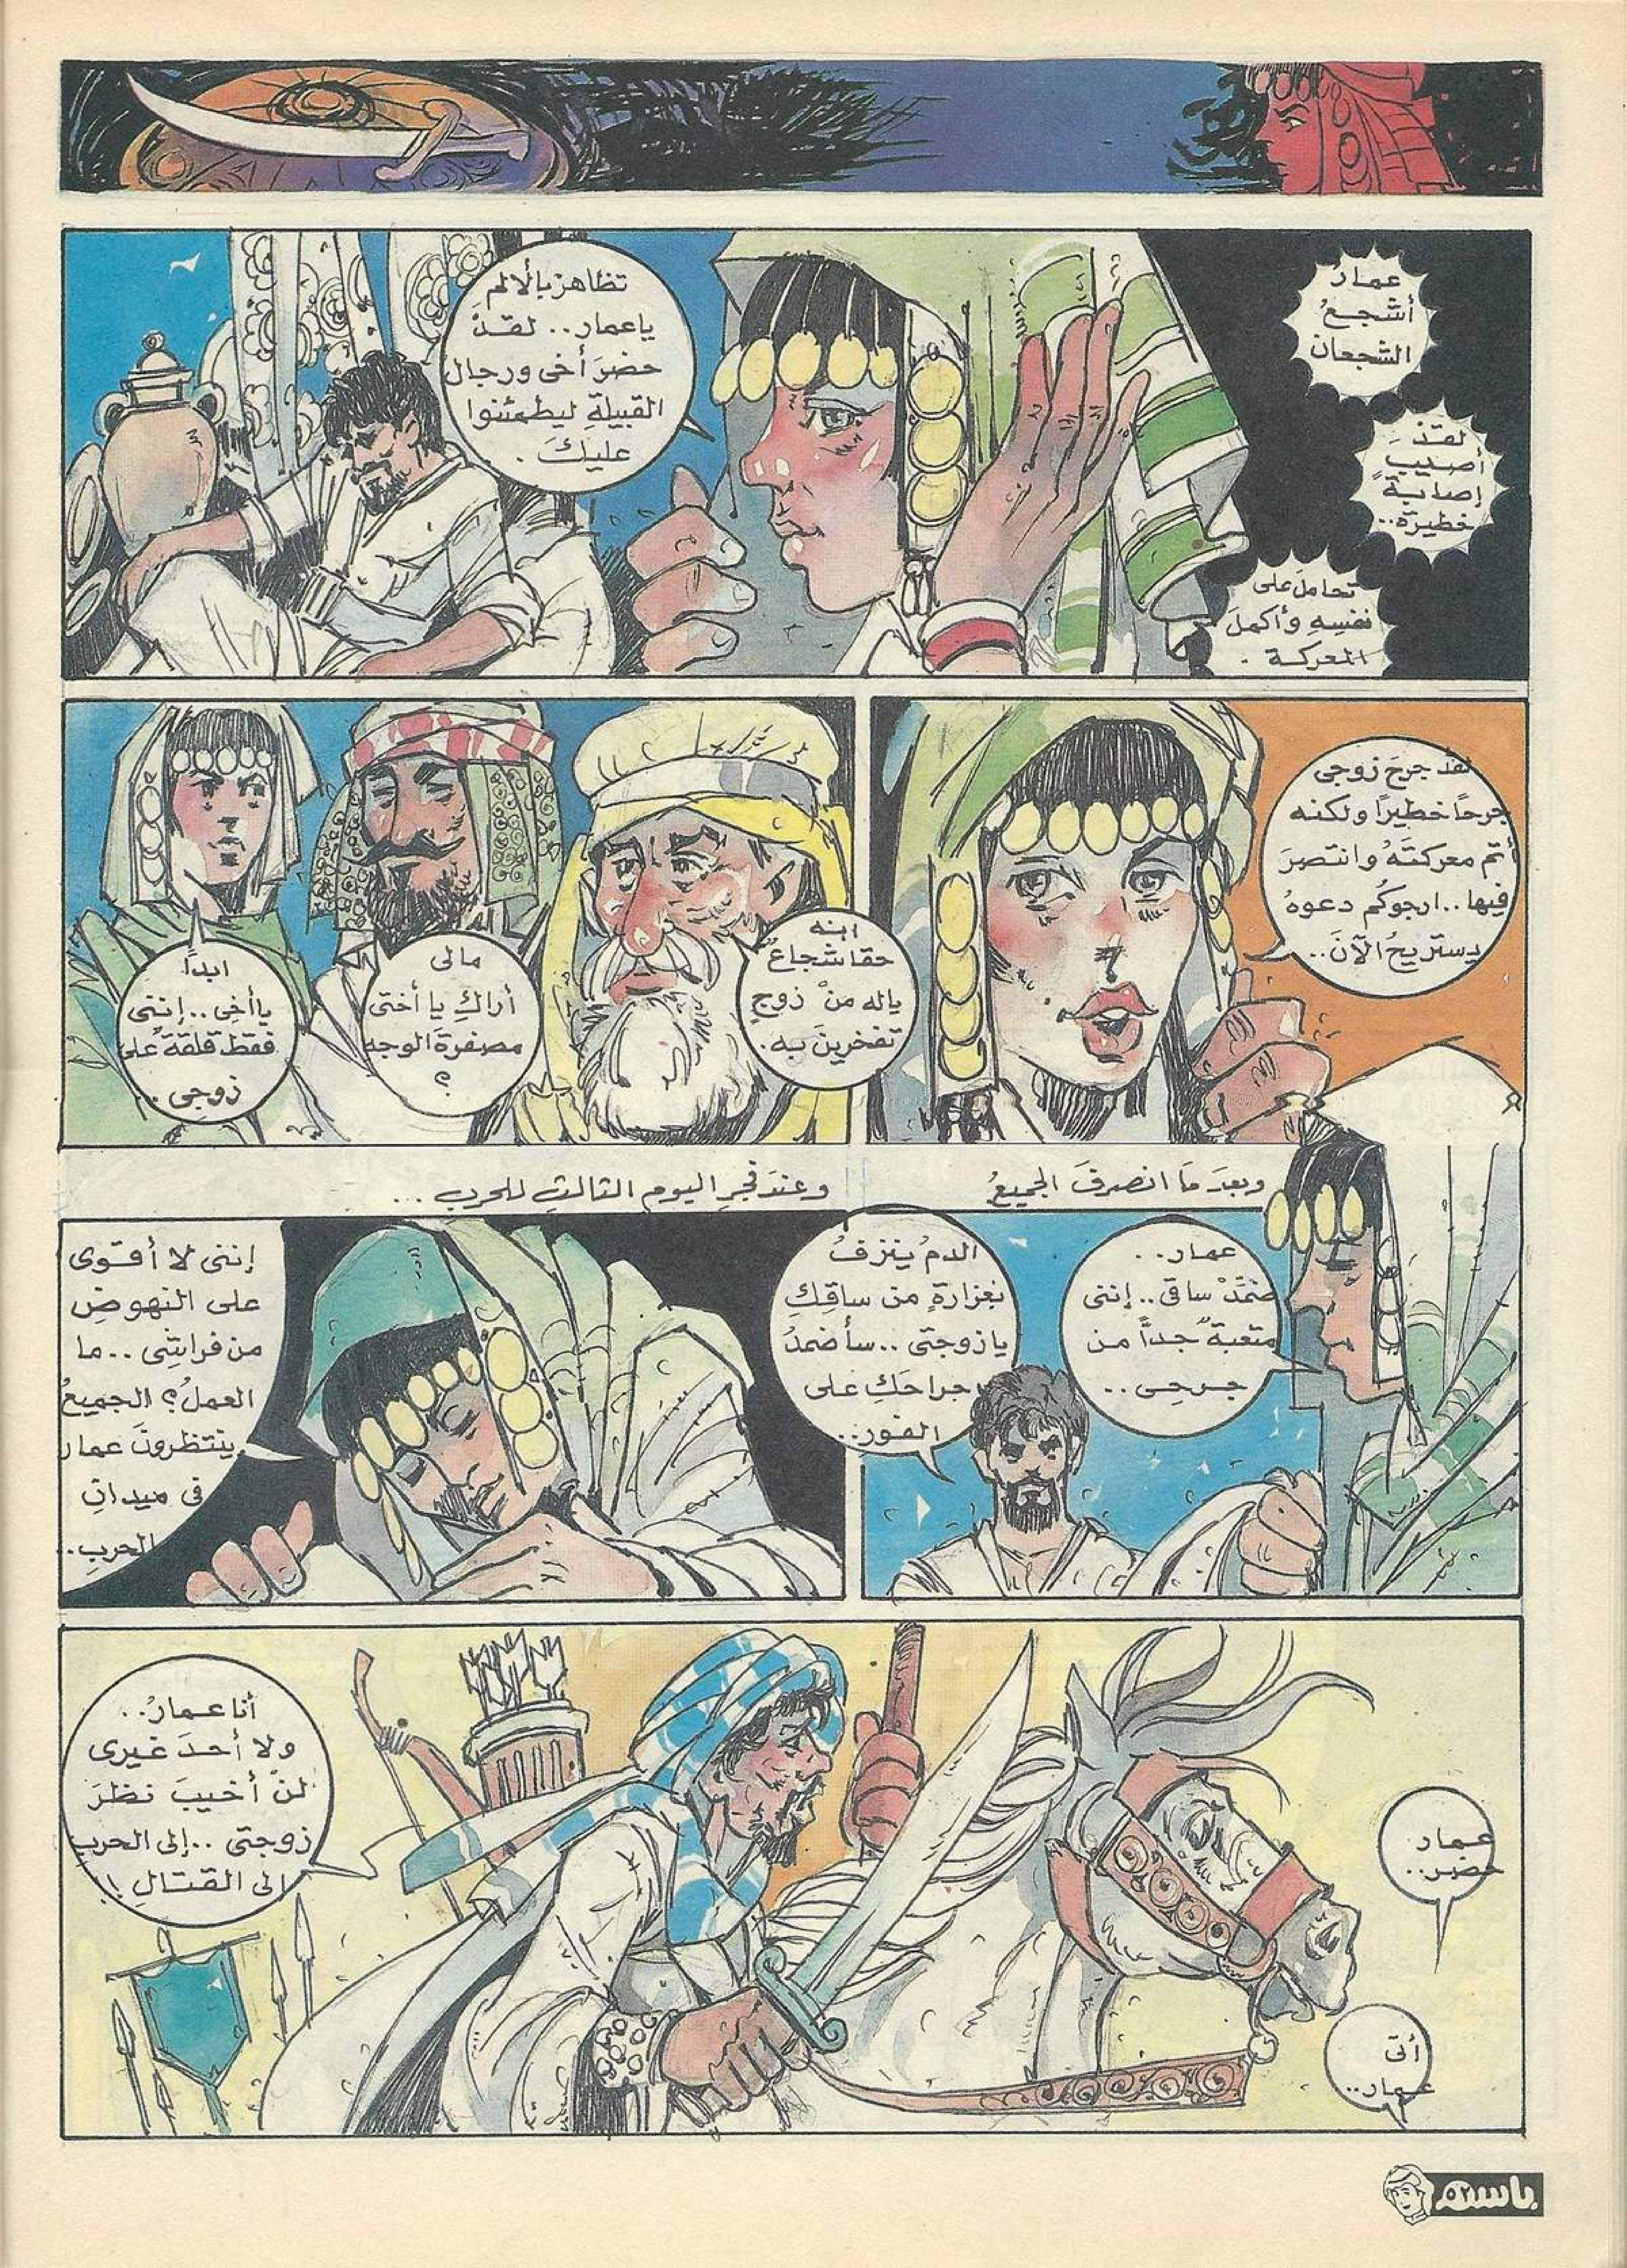 عمارُ
أشجعُ
الشجعان
لقدْ
أصيب
إصابةً
خطيرة..
تحاملَ على
نفسِهِ وأكملَ
المعركة .
تظاهرْ بالألمِ
ياعمار.. لقدْ
حضرَ أخى ورجال
القبيلةِ ليطمئنوا
عليكَ .
لقد جرحَ زوجى
جرحًا خطيرًا ولكنه
أتم معركتَهُ وانتصرَ
فيها..ارجوكُم دعوهُ
يستريحُ الآنَ..
انه
حقا شجاعٌ
ياله منْ زوجٍ
تفخرينَ به.
مالى
أراكِ يا أختى
مصفرةَ الوجه
؟
ابدًا
ياأخِى ..إنتى
فقط قلقةٌ على
زوجى .
وبعدَ مَا انصرفَ الجميعُ
عمار..
ضمِّدْ ساقى ..إننى
متعبةٌ جدًّا من
جرحى ..
الدمُ ينزفُ
بغزارةٍ من ساقِكِ
يازوجتى ..سأضمدُ
جراحَكِ على
الفور..
وعندَ فجرِ اليوم الثالثِ للحرب ...
إننى لا أقوى
على النهوضِ
من فراشِى ..ما
العملُ؟ الجميعُ
ينتظرونَ عمار
فى ميدانِ
الحرب..
عمار
حضر..
أتى
عمار..
أنا عمارُ..
ولا أحدَ غيرى
لنْ أخيبَ نظرَ
زوجتى ..إلى الحربِ
الى القتالِ !
باسم
٥٢